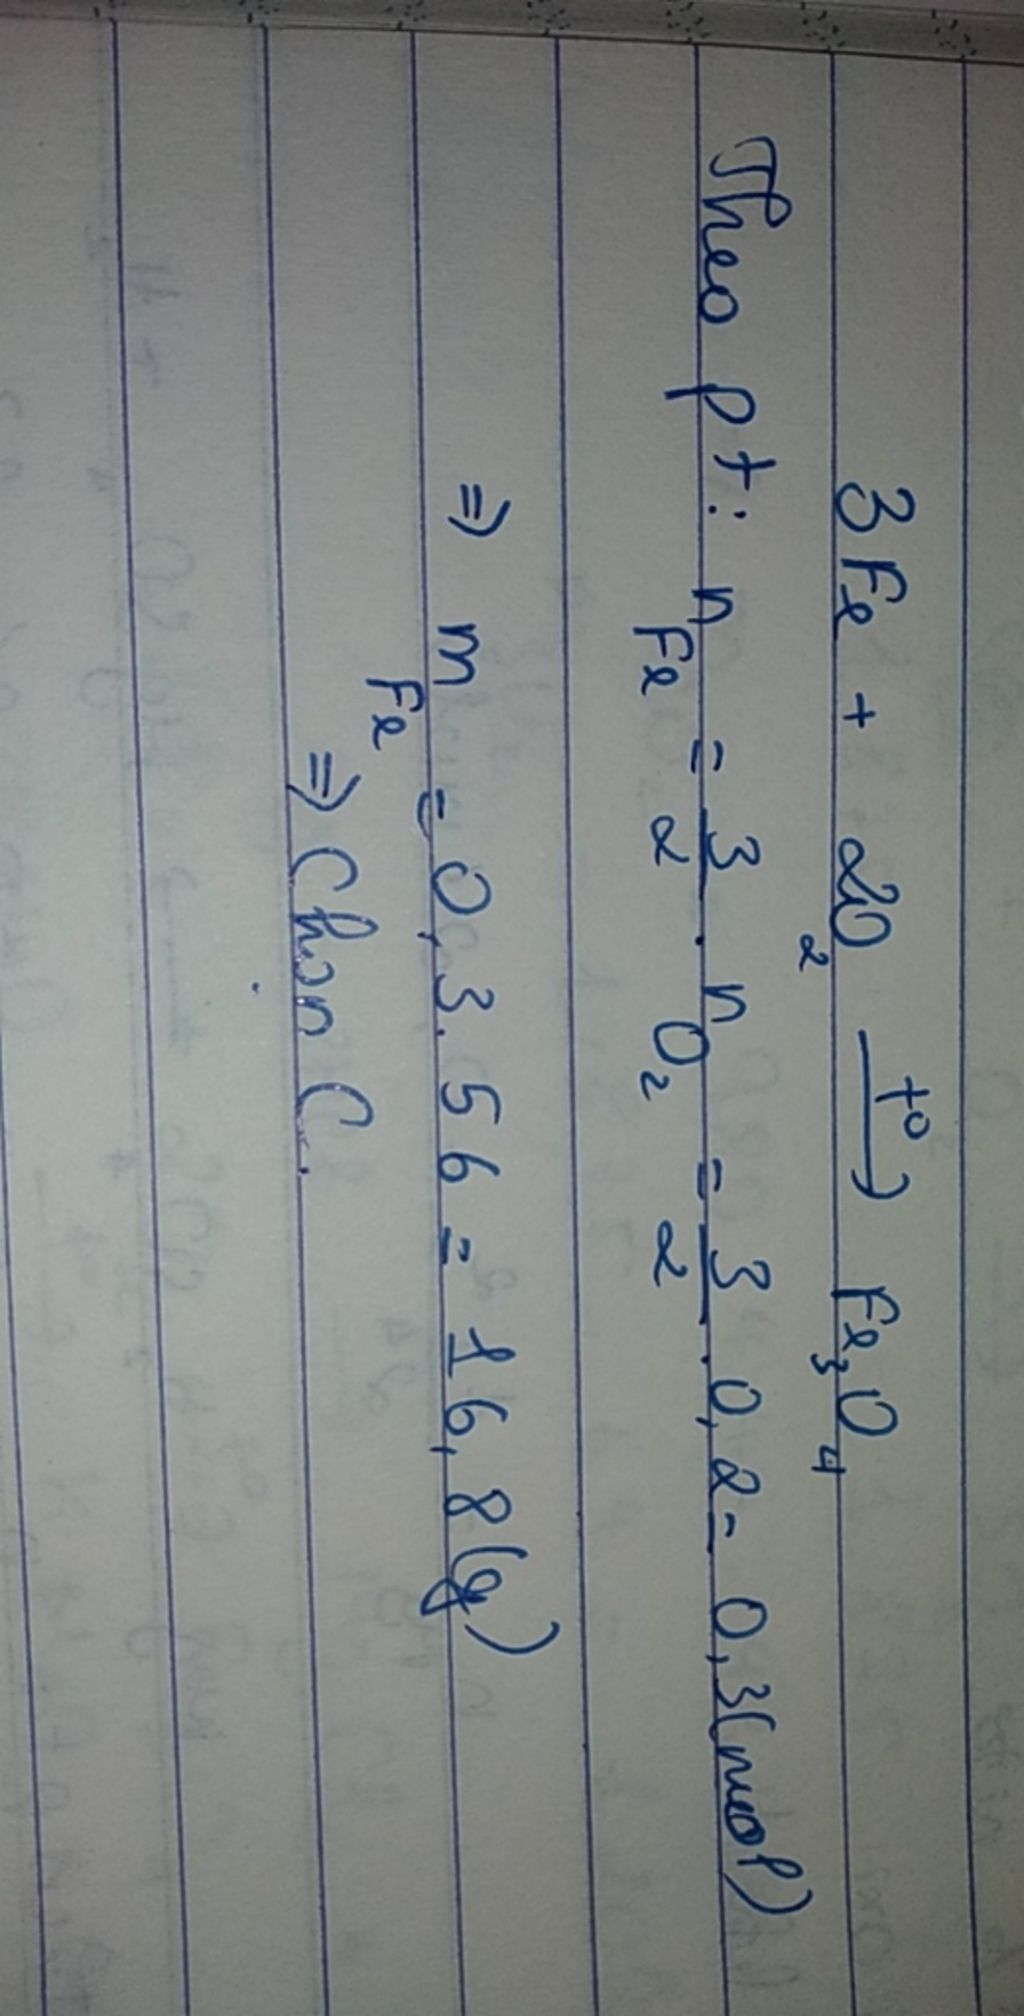 3Fe + 2O₂ —t⁰→ Fe₃O₄
Theo pt: n_Fe = 3/2 . n_O₂ = 3/2 . 0,2 = 0,3 (mol)
⇒ m_Fe = 0,3 . 56 = 16,8 (g)
⇒ Chọn C.